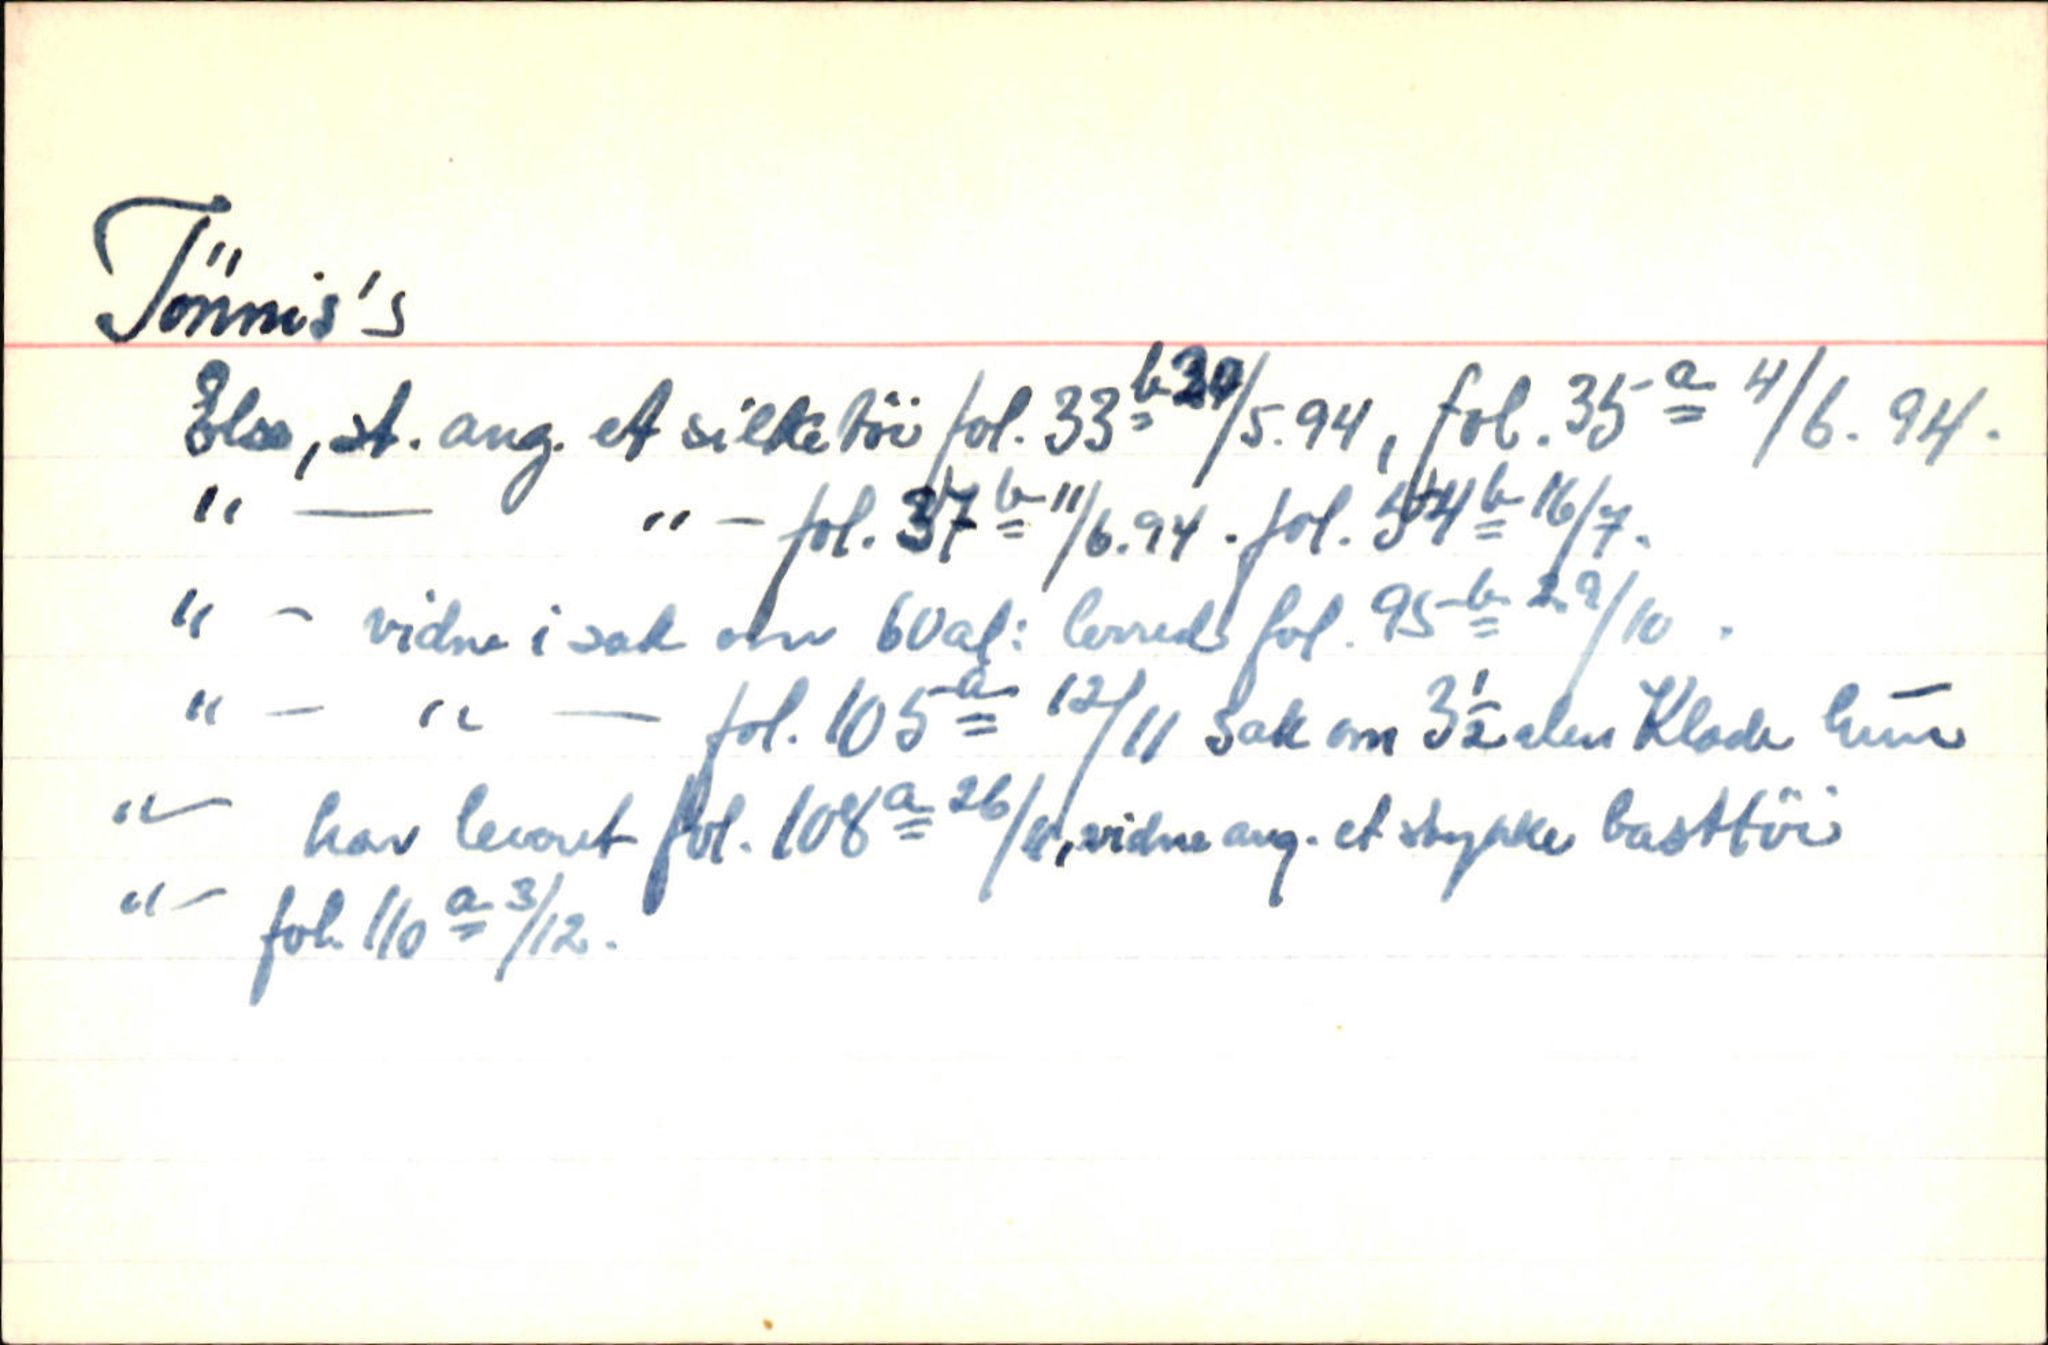 Tönnis's
Else, st. ang. et silketöi fol. 33b 30/5.94, fol. 35a 4/6. 94.
" — " - fol. 37b 11/6.94. fol. 54b 16/7.
" - vidne i sak om 60 al: lerred fol. 95b 29/10.
" - " — fol. 105a 12/11 sak om 3½ alen Klæde hun
" - har levert fol. 108a 26/11, vidne ang. et stykke basttöi
" - fol. 110a 3/12.